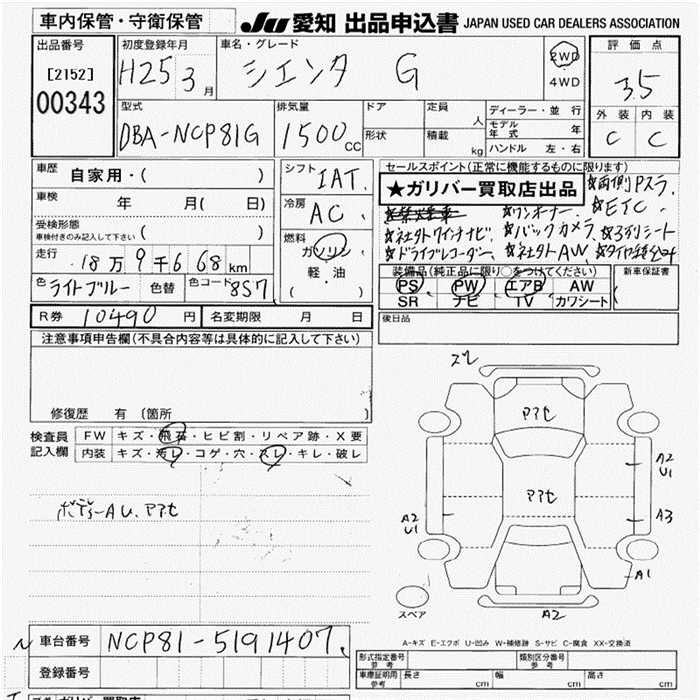 車内保管・守衛保管
JU 愛知 出品申込書 JAPAN USED CAR DEALERS ASSOCIATION
出品番号
[2152]
00343
初度登録年月
H25 3月
車名・グレード
シエンタ G
2WD
4WD
評価点
3.5
外装 内装
C C
型式
DBA-NCP81G
排気量
1500cc
ドア
形状
定員 人
積載 kg
ディーラー・並行
モデル年式 年
ハンドル 左・右
車歴 自家用・( )
車検 年 月( 日)
受検形態
車検付きのみ記入して下さい ( )
走行 18万9千668km
色 ライトブルー 色替 色コード 8S7
シフト IAT.
冷房 AC
燃料
ガソリン
軽・油
( )
セールスポイント(正常に機能するものに限ります)
★ガリバー買取店出品
☆両側Pスラ
☆ワンオーナー. ☆ETC
☆社外ナビ. ☆バックカメラ ☆3列シート
☆ドライブレコーダー. ☆社外AW.
装備品(純正品に限り○をつけてください)
PS PW エアB AW
SR ナビ TV カワシート
新車保証書
( )
R券 10490円 名変期限 月 日
後日品
注意事項申告欄(不具合内容等は具体的に記入して下さい)
修復歴 有 (箇所 )
検査員記入欄
FW キズ・飛石・ヒビ割・リペア跡・X要
内装 キズ・汚レ・コゲ・穴・スレ・キレ・破レ
ボデーAU.アアセ
スレ
アアセ
アアセ
A2
U1
A2
U1
A3
A1
A2
スペア
A-キズ E-エクボ U-凹み W-補修跡 S-サビ C-腐食 XX-交換済
車台番号 NCP81-5191407
登録番号
形式指定番号 参考
類別区分番号 参考
車庫証明用 参考 長さ cm 幅 cm 高さ cm
ガリバー買取店